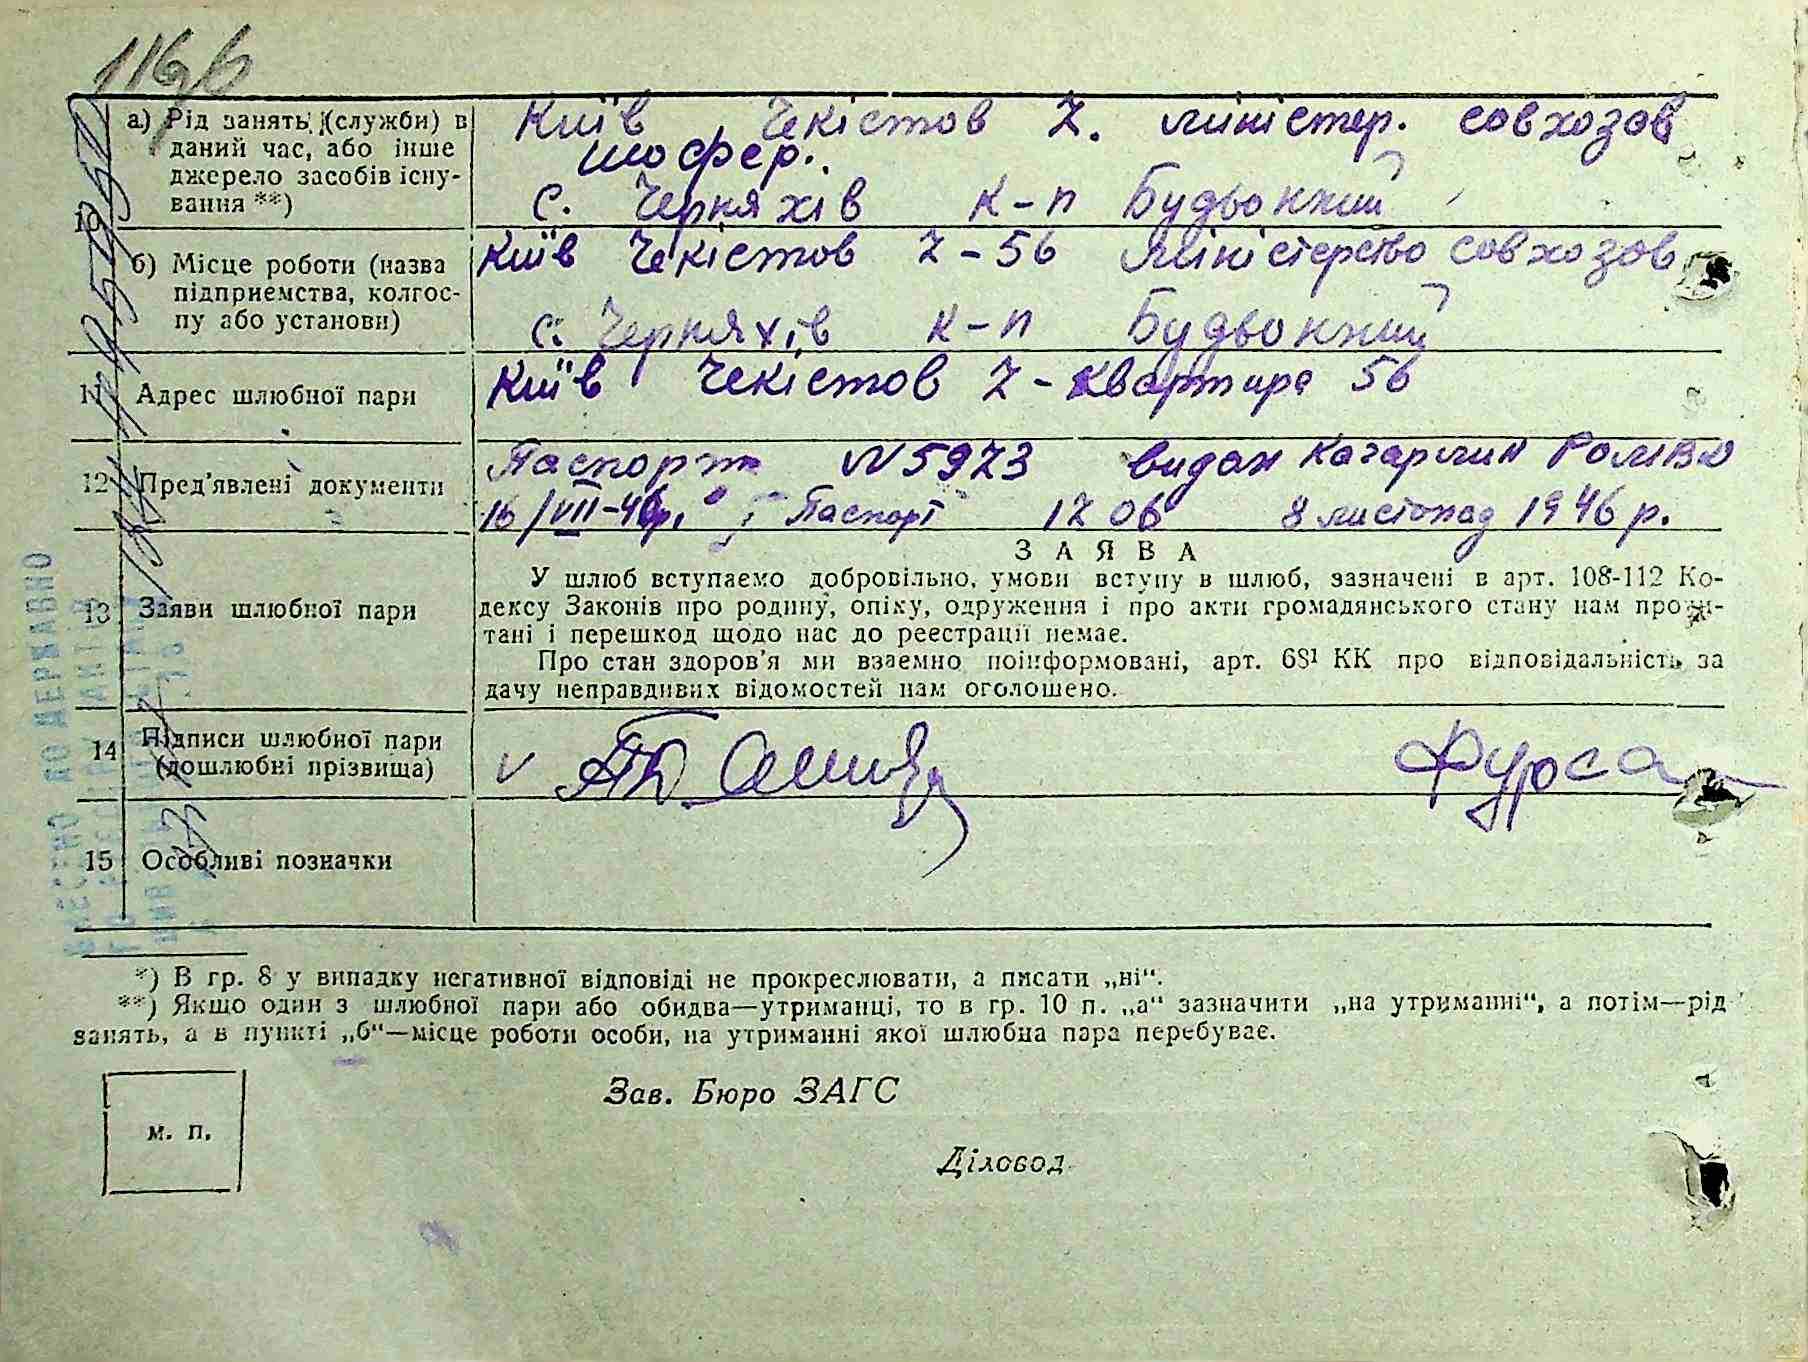 116б
10
а) Рід занять (служби) в даний час, або інше джерело засобів існування **)
Київ Чекістов 7. міністер. совхозов
шофер.
с. Черняхів к-п Будьонний
б) Місце роботи (назва підприємства, колгоспу або установи)
Київ Чекістов 7-56 міністерство совхозов
с. Черняхів к-п Будьонний
11 Адрес шлюбної пари
Київ Чекістов 7 - квартира 56
12 Пред'явлені документи
Паспорт N 5973 видан Кагарлин РОМВД
16/VII-46р. Паспорт 1706 8 листопад 1946 р.
13 Заяви шлюбної пари
ЗАЯВА
У шлюб вступаємо добровільно, умови вступу в шлюб, зазначені в арт. 108-112 Ко-
дексу Законів про родину, опіку, одруження і про акти громадянського стану нам прочи-
тані і перешкод щодо нас до реєстрації немає.
Про стан здоров'я ми взаємно поінформовані, арт. 68¹ КК про відповідальність за
дачу неправдивих відомостей нам оголошено.
14 Підписи шлюбної пари
(дошлюбні прізвища)
Фурса
15 Особливі позначки
*) В гр. 8 у випадку негативної відповіді не прокреслювати, а писати „ні“.
**) Якщо один з шлюбної пари або обидва—утриманці, то в гр. 10 п. „а“ зазначити „на утриманні“, а потім—рід
занять, а в пункті „б“—місце роботи особи, на утриманні якої шлюбна пара перебуває.
Зав. Бюро ЗАГС
м. п.
Діловод